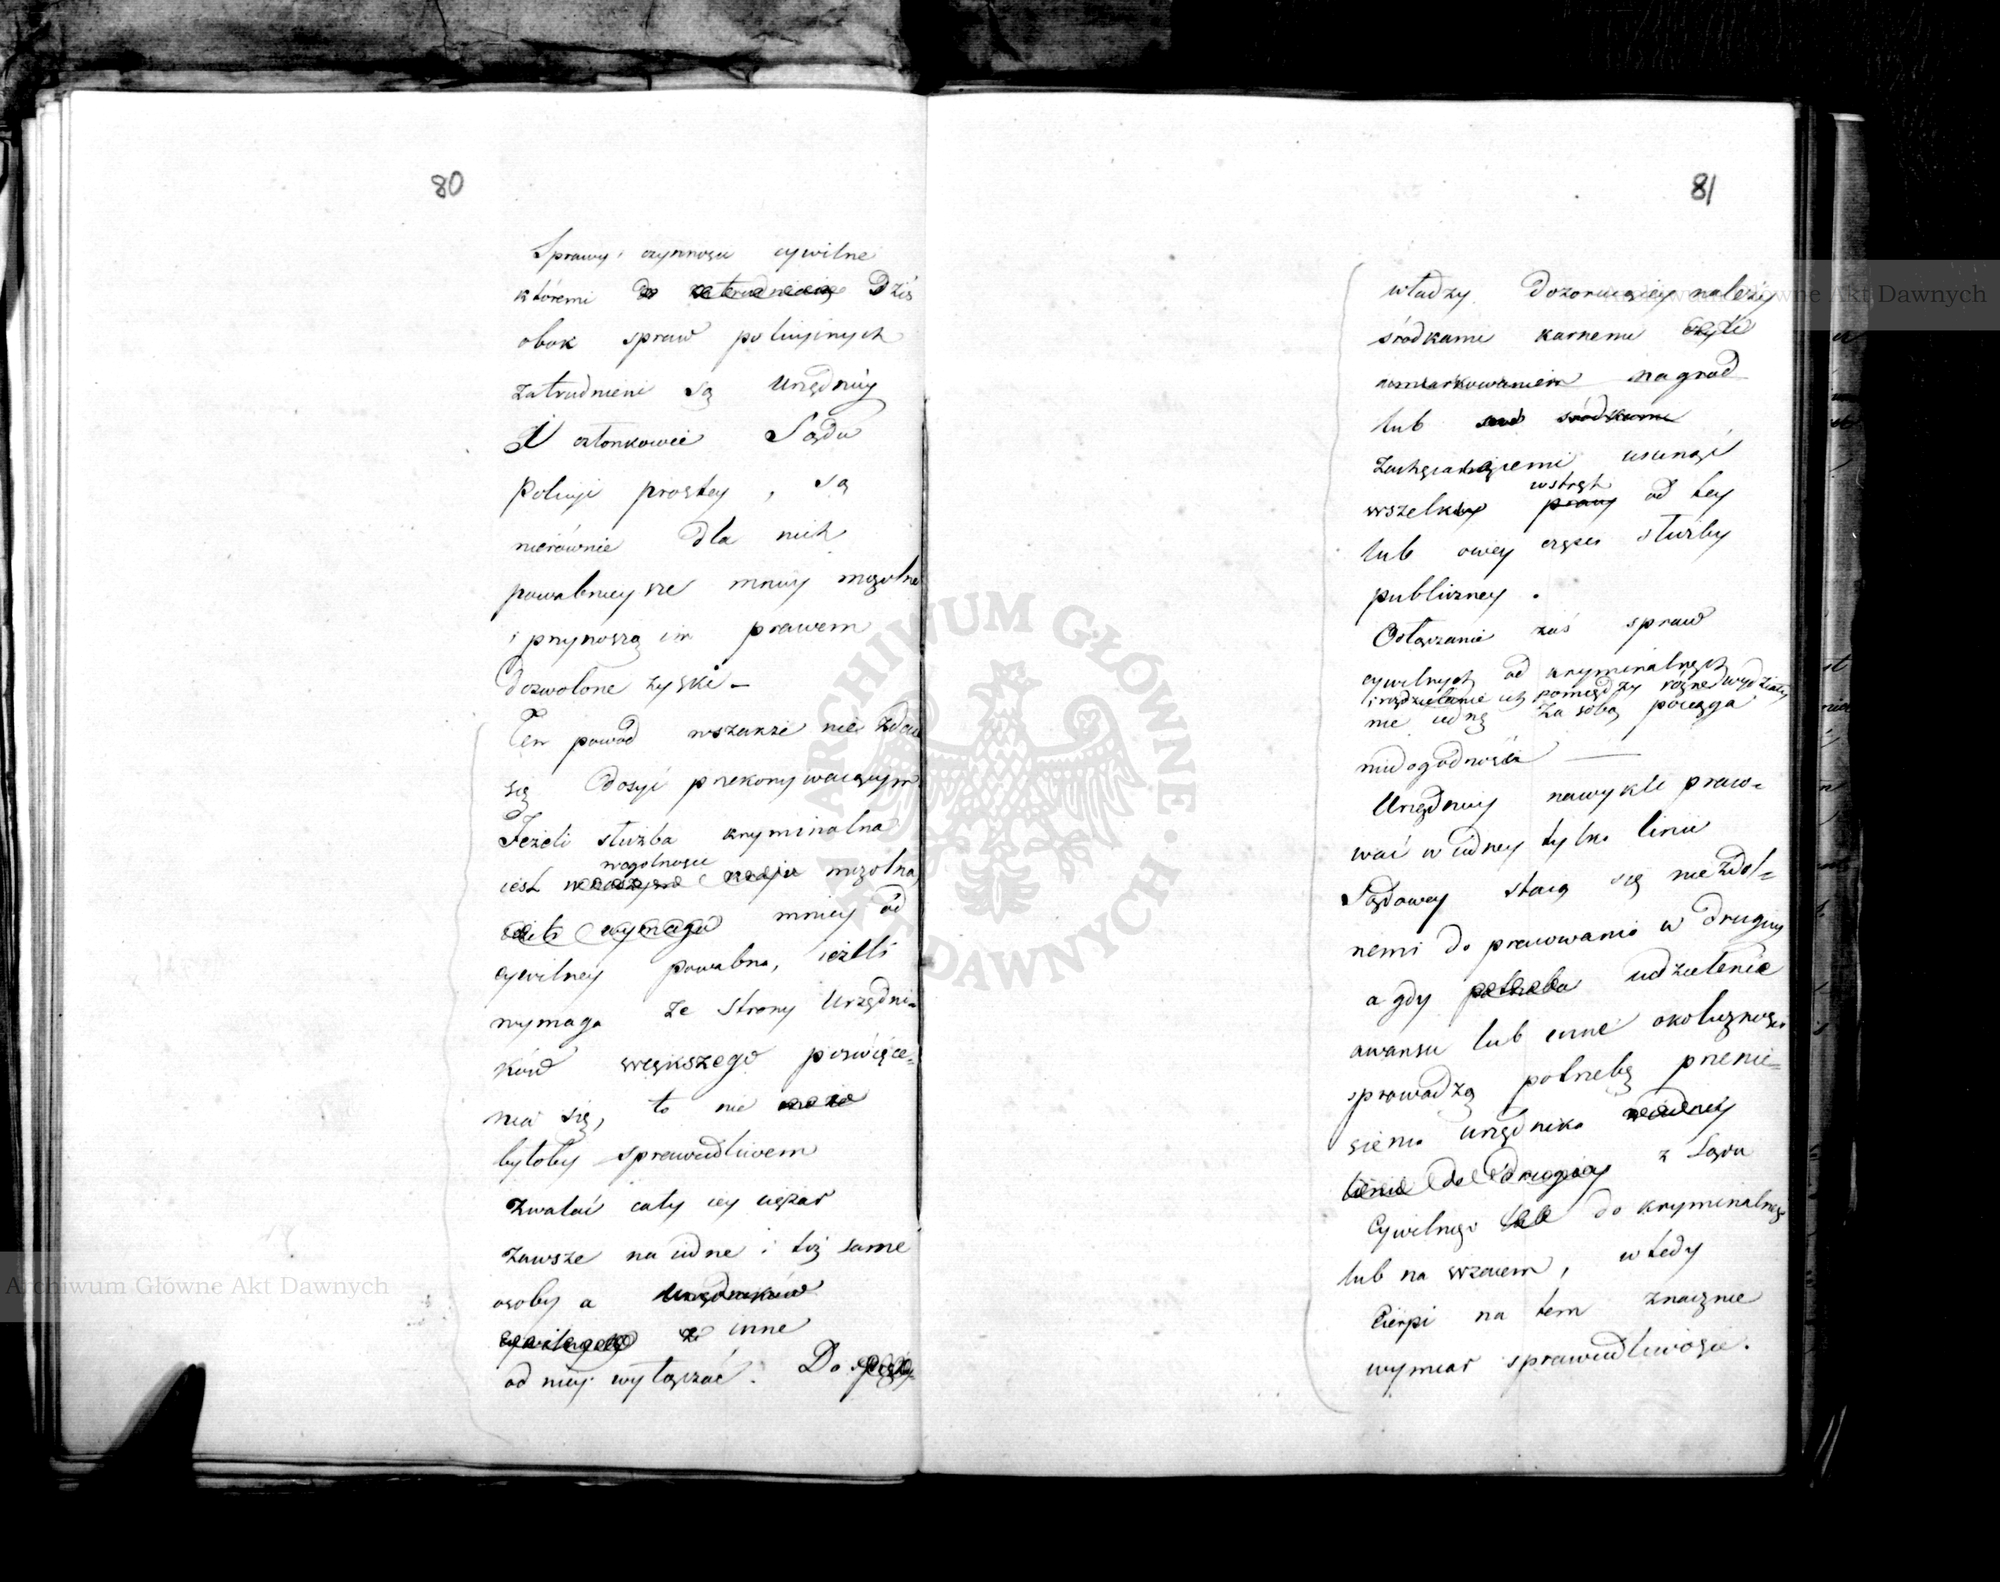 80
Sprawy i czynności cywilne
któremi do zatrudnieni Dziś
obok spraw policyinych
zatrudnieni są Urzędnicy
i członkowie Sądu
Policyi prostey, są
nierównie dla nich
powabnieysze mniey mozolne
i przynoszą im prawem
dozwolone zyski –
Ten powód wszakże nie zdaie
się dosyć przekonywaiącym.
Jeżeli służba kryminalna
wogólności
iest mozolna,
wymaga mniey od
cywilney powabna, ieżeli
wymaga ze strony Urzędni=
ków większego poświęce=
nia się, to nie może
byłoby sprawiedliwem
zwalać cały iey ciężar
zawsze na iedne i też same
osoby a Urzędników
cywilnych inne
od niey wyłączać. Do
81
władzy dozoruiącey należy
śródkami karnemi
umiarkowaniem nagród
lub śródkami
zachęcaiącemi usunąć
wstręt
wszelki pracy od tey
lub owey części służby
publiczney.
Odłączanie zaś spraw
cywilnych od kryminalnych
i rozdzielanie ich pomiędzy różne wydziały
nie iedną za sobą pociąga
niedogodność —
Urzędnicy nawykli praco=
wać w iedney tylko linii
Sądowey staią się niezdol=
nemi do pracowania w drugiey
a gdy potrzeba udzielenie
awansu lub inne okoliczności
sprowadzą potrzebę przenie=
sienia urzędnika z iedney
linii do drugiey z Sądu
Cywilnego lub do kryminalnego
lub na wzaiem, wtedy
Cierpi na tem znacznie
wymiar sprawiedliwości.
ARCHIWUM GŁÓWNE AKT DAWNYCH
Archiwum Główne Akt Dawnych
Archiwum Główne Akt Dawnych